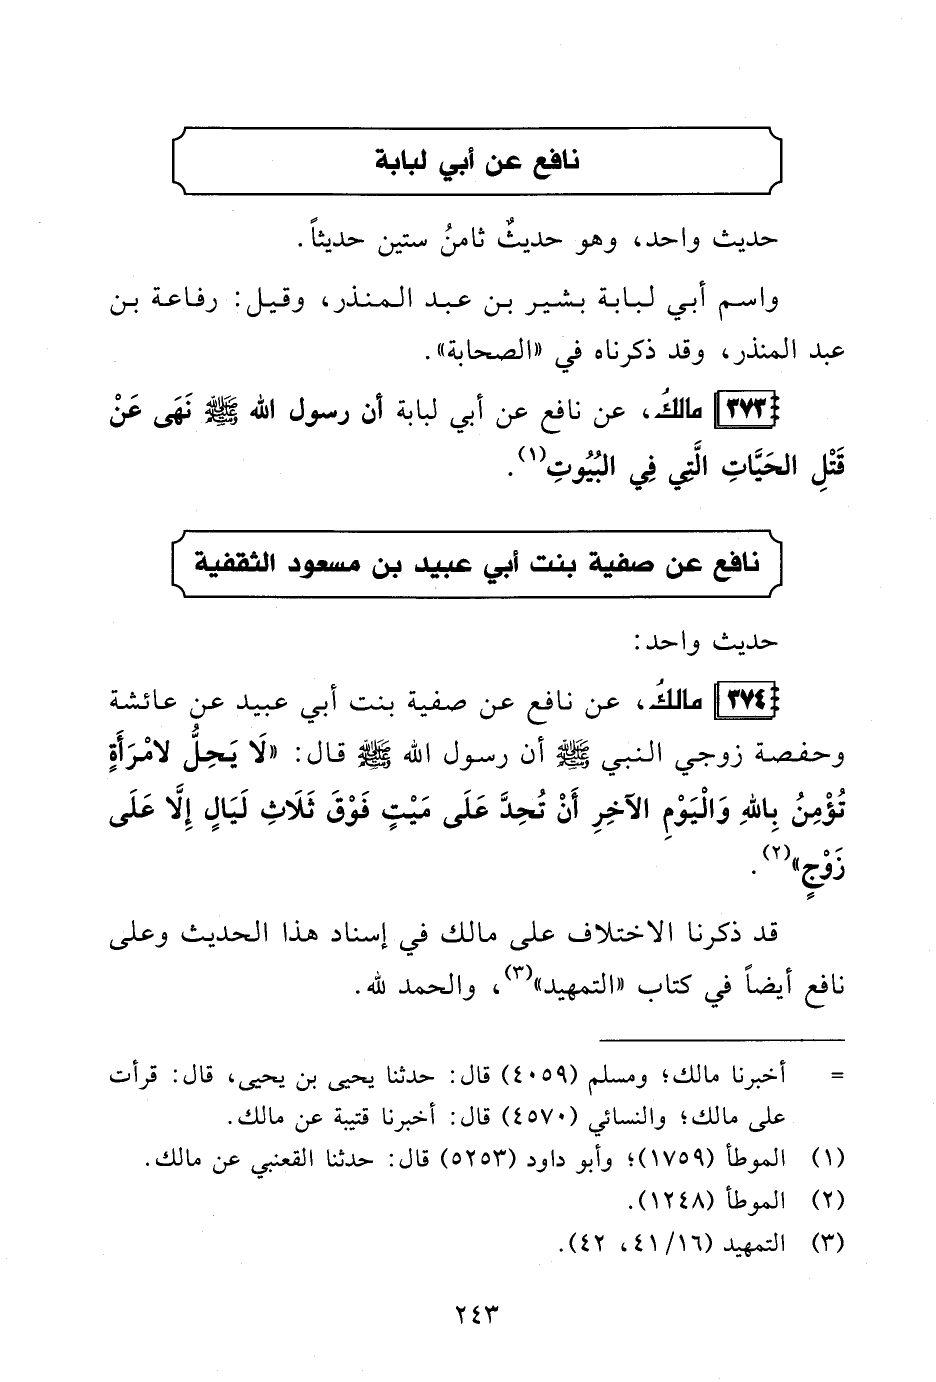 نافع عن أبي لبابة
حديث واحد، وهو حديثٌ ثامنُ ستين حديثاً.
واسم أبي لبابة بشير بن عبد المنذر، وقيل: رفاعة بن
عبد المنذر، وقد ذكرناه في «الصحابة».
٣٧٣ مالكُ، عن نافع عن أبي لبابة أن رسول الله ﷺ نَهَى عَنْ
قَتْلِ الحَيَّاتِ الَّتِي فِي البُيُوتِ(١).
نافع عن صفية بنت أبي عبيد بن مسعود الثقفية
حديث واحد:
٣٧٤ مالكُ، عن نافع عن صفية بنت أبي عبيد عن عائشة
وحفصة زوجي النبي ﷺ أن رسول الله ﷺ قال: «لَا يَحِلُّ لامْرَأَةٍ
تُؤْمِنُ بِاللهِ وَالْيَوْمِ الآخِرِ أَنْ تُحِدَّ عَلَى مَيْتٍ فَوْقَ ثَلَاثِ لَيَالٍ إِلَّا عَلَى
زَوْجٍ»(٢).
قد ذكرنا الاختلاف على مالك في إسناد هذا الحديث وعلى
نافع أيضاً في كتاب «التمهيد»(٣)، والحمد لله.
= أخبرنا مالك؛ ومسلم (٤٠٥٩) قال: حدثنا يحيى بن يحيى، قال: قرأت
على مالك؛ والنسائي (٤٥٧٠) قال: أخبرنا قتيبة عن مالك.
(١) الموطأ (١٧٥٩)؛ وأبو داود (٥٢٥٣) قال: حدثنا القعنبي عن مالك.
(٢) الموطأ (١٢٤٨).
(٣) التمهيد (٤١/١٦، ٤٢).
٢٤٣